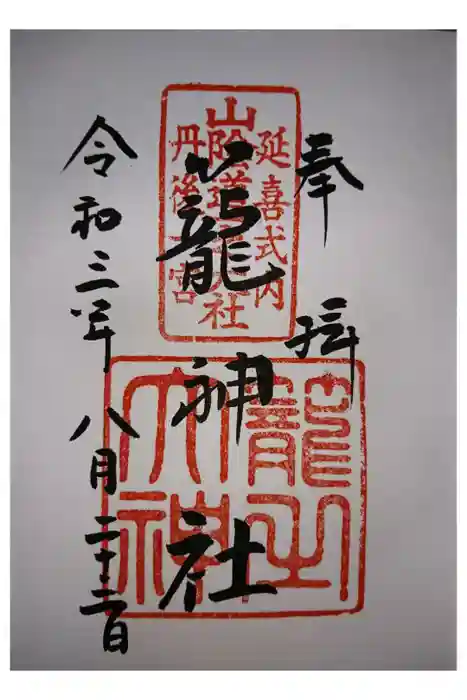 奉拝
延喜式内
山陰道一之大社
丹後一宮
籠神社
籠之大神
令和三年八月二十二日